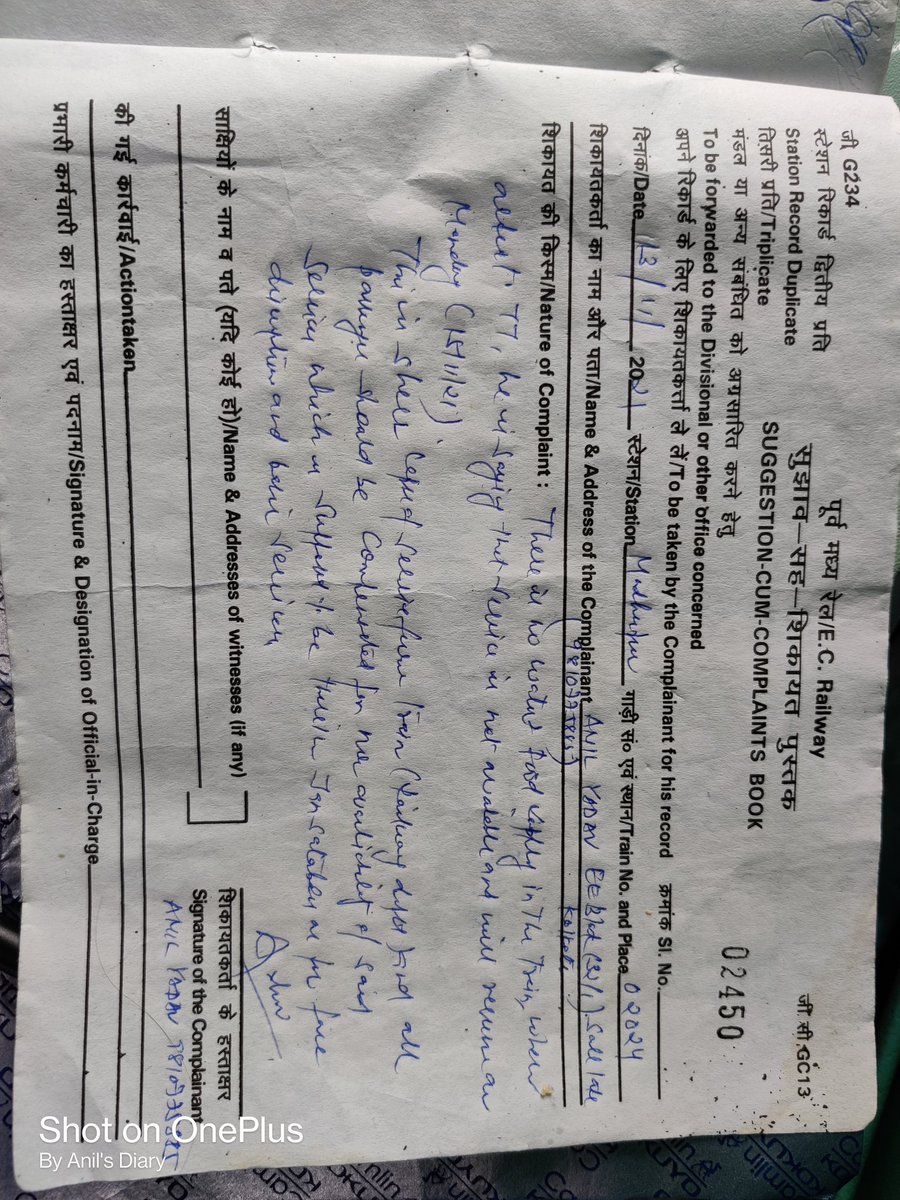 जी G234
पूर्व मध्य रेल/E.C. Railway
जी.सी.GC13
स्टेशन रिकार्ड द्वितीय प्रति
सुझाव–सह–शिकायत पुस्तक
Station Record Duplicate
SUGGESTION-CUM-COMPLAINTS BOOK
02450
तिसरी प्रति/Triplicate
मंडल या अन्य सबंधित को अग्रसारित करने हेतु
To be forwarded to the Divisional or other office concerned
अपने रिकार्ड के लिए शिकायतकर्त्ता ले लें/To be taken by the Complainant for his record क्रमांक Sl. No.
दिनांक/Date 13/11/2021 स्टेशन/Station Madhupur गाड़ी सं० एवं स्थान/Train No. and Place 02024
शिकायतकर्ता का नाम और पता/Name & Address of the Complainant ANIL YADAV EE Block Salt lake
Kolkata
शिकायत की किस्म/Nature of Complaint : There is no water food supply in the train, when
TT, he is saying that service is not available and will resume on
Monday (15/11/21).
This is sheer case of train (Railway dept) and all
passenger should be compensated for non availability of said
service which is suppose to be there in Janshatabdi as per fare
and service
साक्षियों के नाम व पते (यदि कोई हो)/Name & Addresses of witnesses (if any)
शिकायतकर्ता के हस्ताक्षर
Signature of the Complainant
ANIL YADAV
की गई कार्रवाई/Actiontaken
प्रभारी कर्मचारी का हस्ताक्षर एवं पदनाम/Signature & Designation of Official-in-Charge
Shot on OnePlus
By Anil's Diary